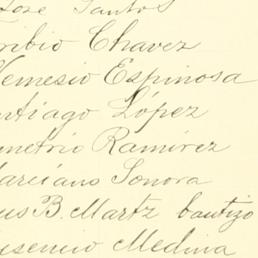 José Santos
ribio Chavez
Nemesio Espinosa
ntiago López
metrio Ramirez
arciano Sonora
us B. Martz bautizo
usencio Medina